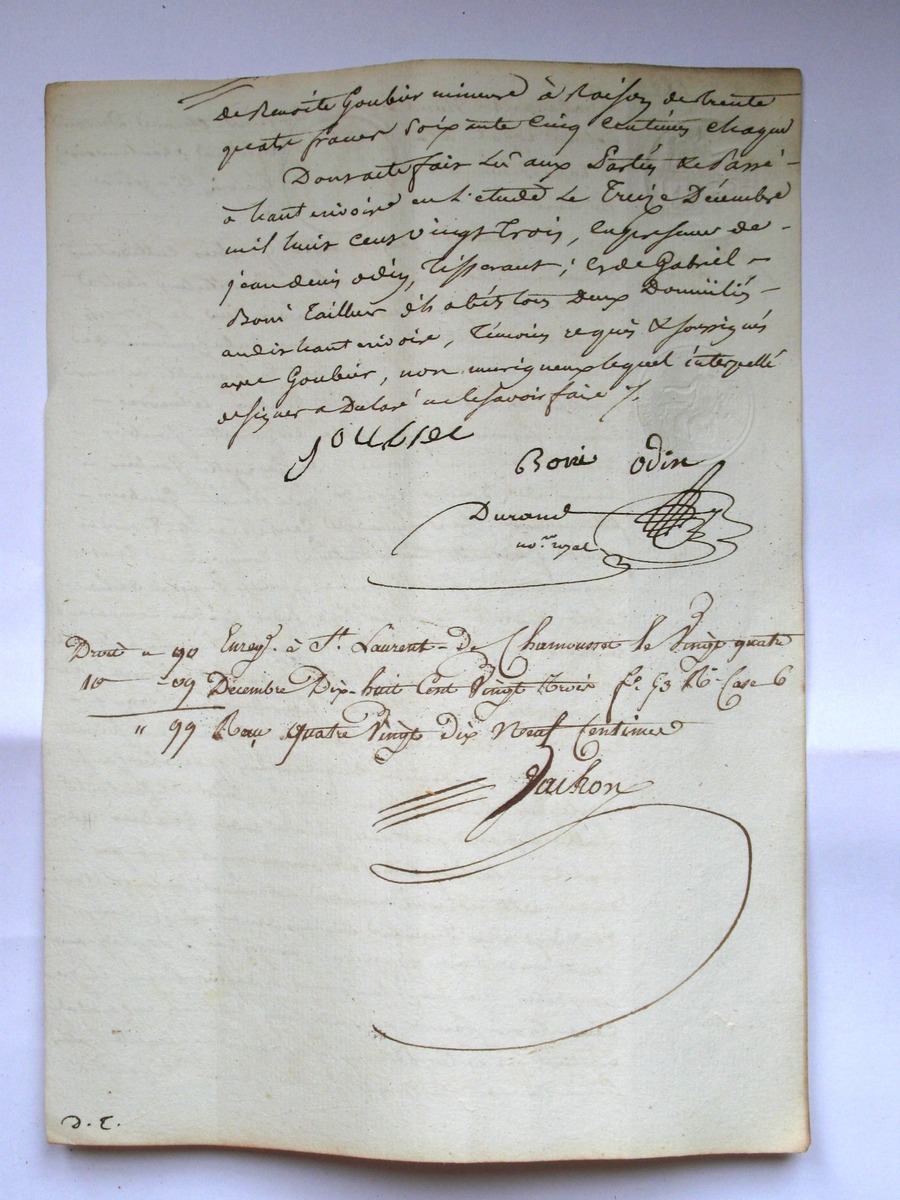 de Benoite Goubier mineure à Raison de trente
quatre francs soixante cinq centimes chaque
Dont acte fait Lû aux Parties & Passé
à hauterivoire en L'étude Le Treize Décembre
mil huit cent vingt trois, en présence de
jean denis odin, Tisserant, et de Gabriel
Boiri Tailleur d'habits tous deux Domiciliés
audit hauterivoire, Témoins requis & soussignés
avec Goubier, non murigneux lequel interpellé
de signer a Déclaré ne le savoir faire /.
goubier
Boiri odin
Durand
no.re royal
Droit " 90 Enreg. à St. Laurent-de Chamousset le Vingt quatre
10e - 09 Décembre Dix-huit Cent Vingt trois f.o 93 R.o Case 6
" 99 Reçu quatre Vingt dix Neuf Centimes
Jachon
D. E.